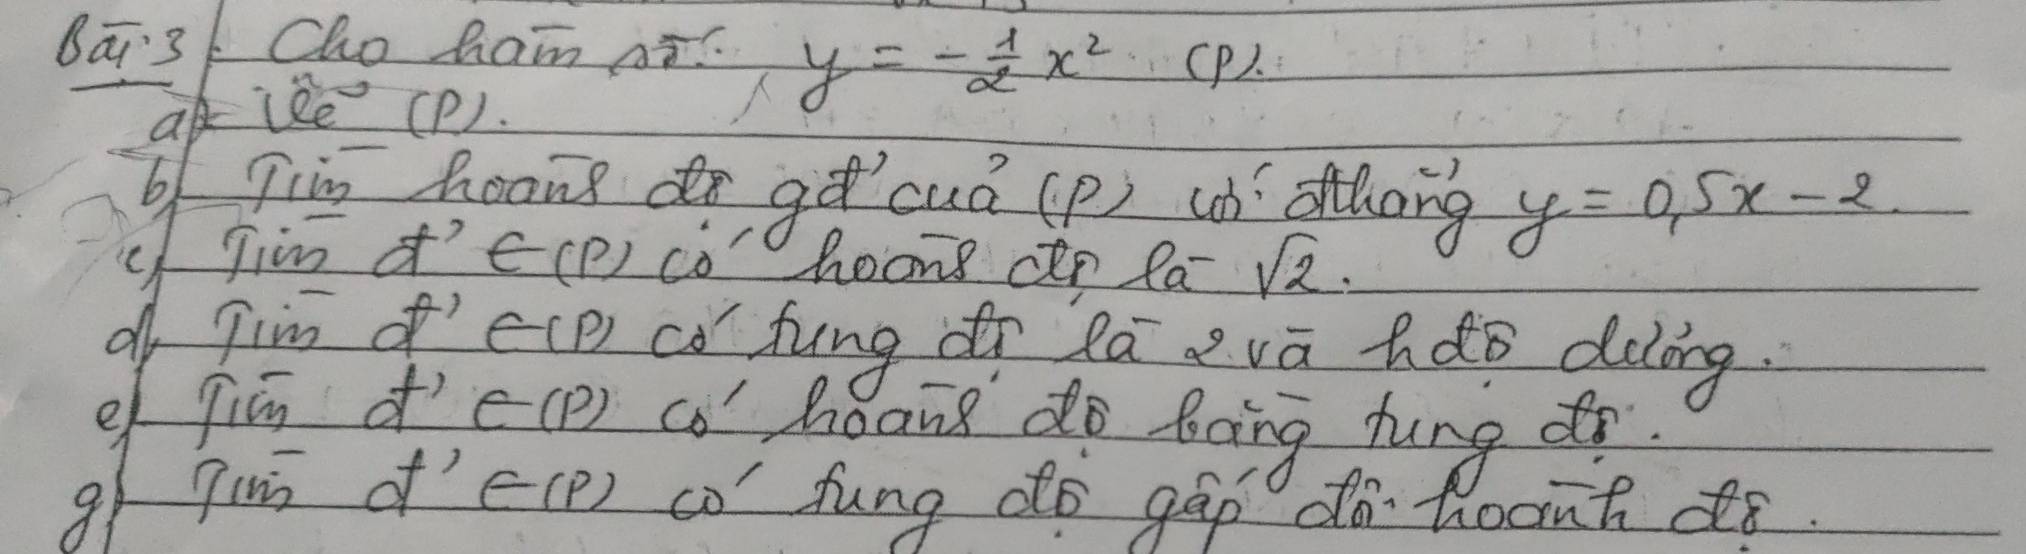 Bài 3. Cho hàm số: y = -1/2 x² (P).
a, Vẽ (P).
b, Tìm hoành độ gđ' của (P) với đthẳng y = 0,5x - 2.
c, Tìm đ' ∈ (P) có hoành độ là √2.
d, Tìm đ' ∈ (P) có tung độ là 2 và h độ dương.
e, Tìm đ' ∈ (P) có hoành độ bằng tung độ.
g, Tìm đ' ∈ (P) có tung độ gấp đôi hoành độ.